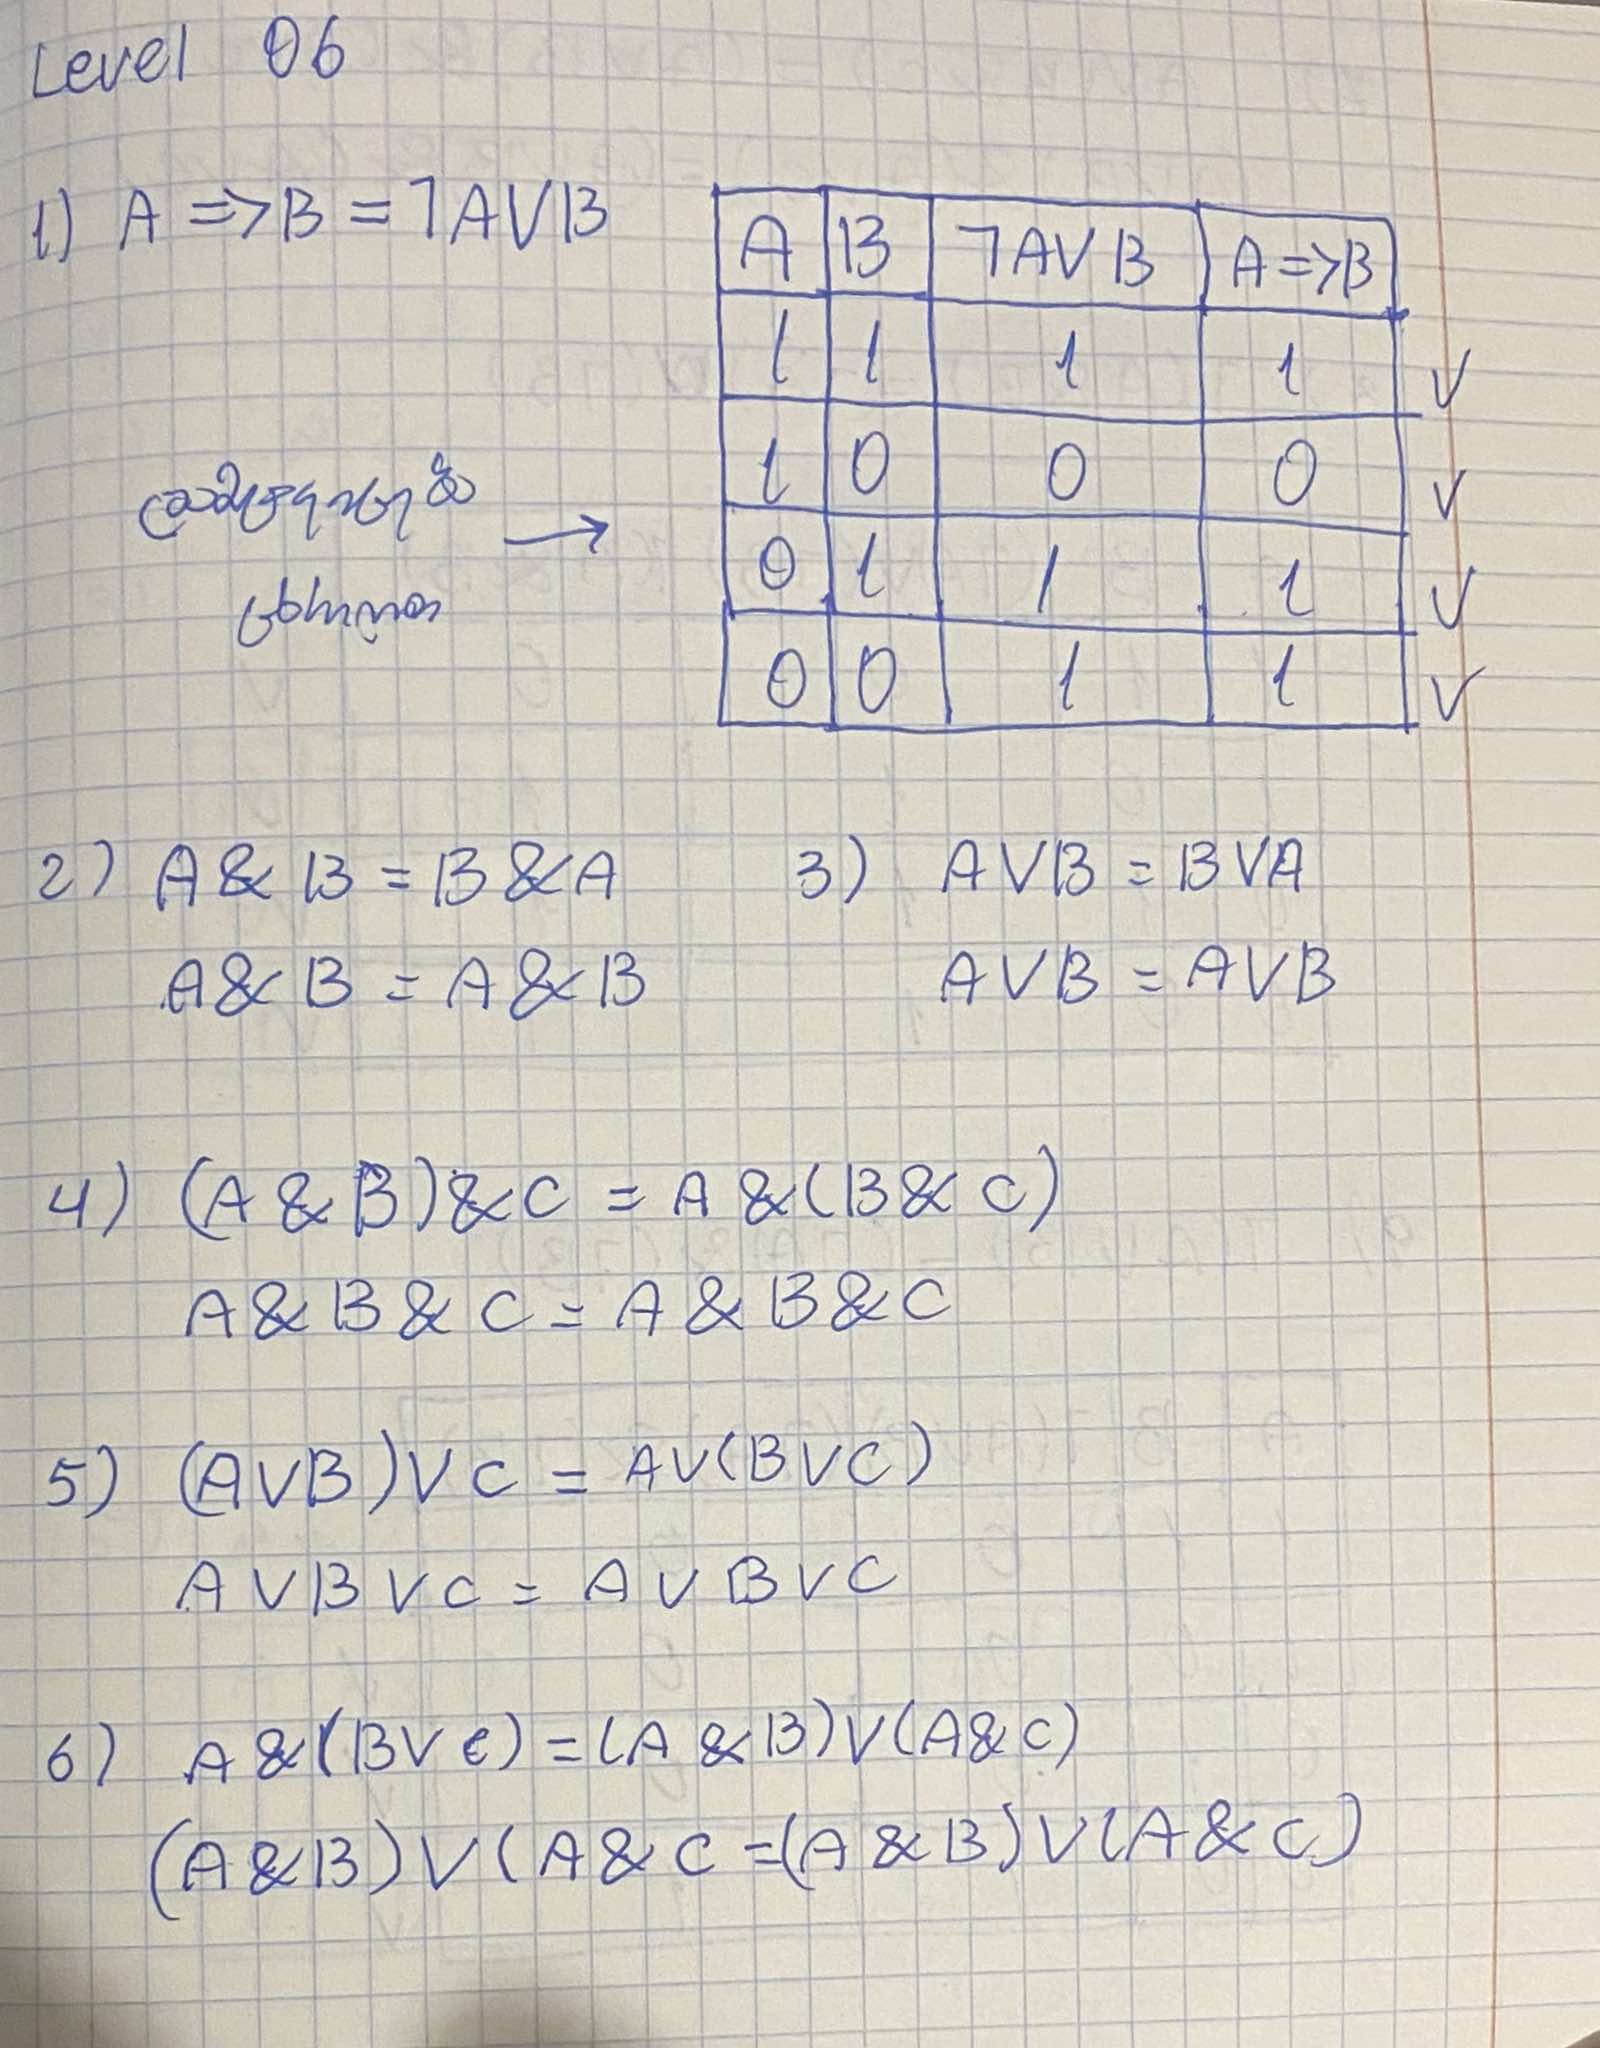 Level 06
1) A => B = ¬A∨B
A B ¬A∨B A=>B
1 1 1 1 ∨
1 0 0 0 ∨
0 1 1 1 ∨
0 0 1 1 ∨
→
2) A & B = B & A
A & B = A & B
3) A∨B = B∨A
A∨B = A∨B
4) (A & B) & C = A & (B & C)
A & B & C = A & B & C
5) (A∨B)∨C = A∨(B∨C)
A∨B∨C = A∨B∨C
6) A & (B∨C) = (A & B)∨(A & C)
(A & B)∨(A & C = (A & B)∨(A & C)